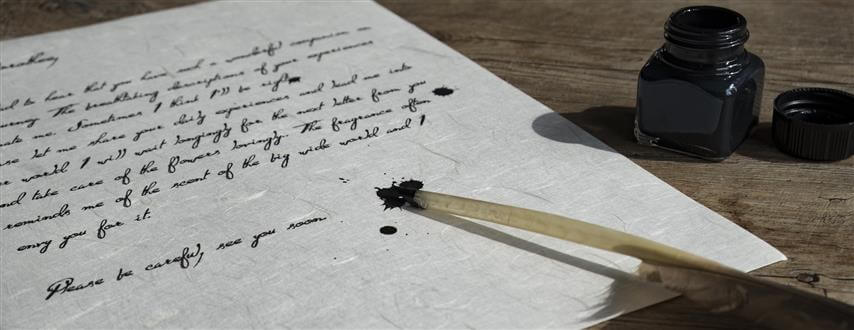 to hear that you have had a wonderful companion on
The breathtaking descriptions of your experiences
me. Sometimes I think I'll be
let me share your daily experiences and lead me into
world I will wait longingly for the next letter from you
and take care of the flowers lovingly. The fragrance often
reminds me of the scent of the big wide world and I
envy you for it.
Pease be careful, see you soon